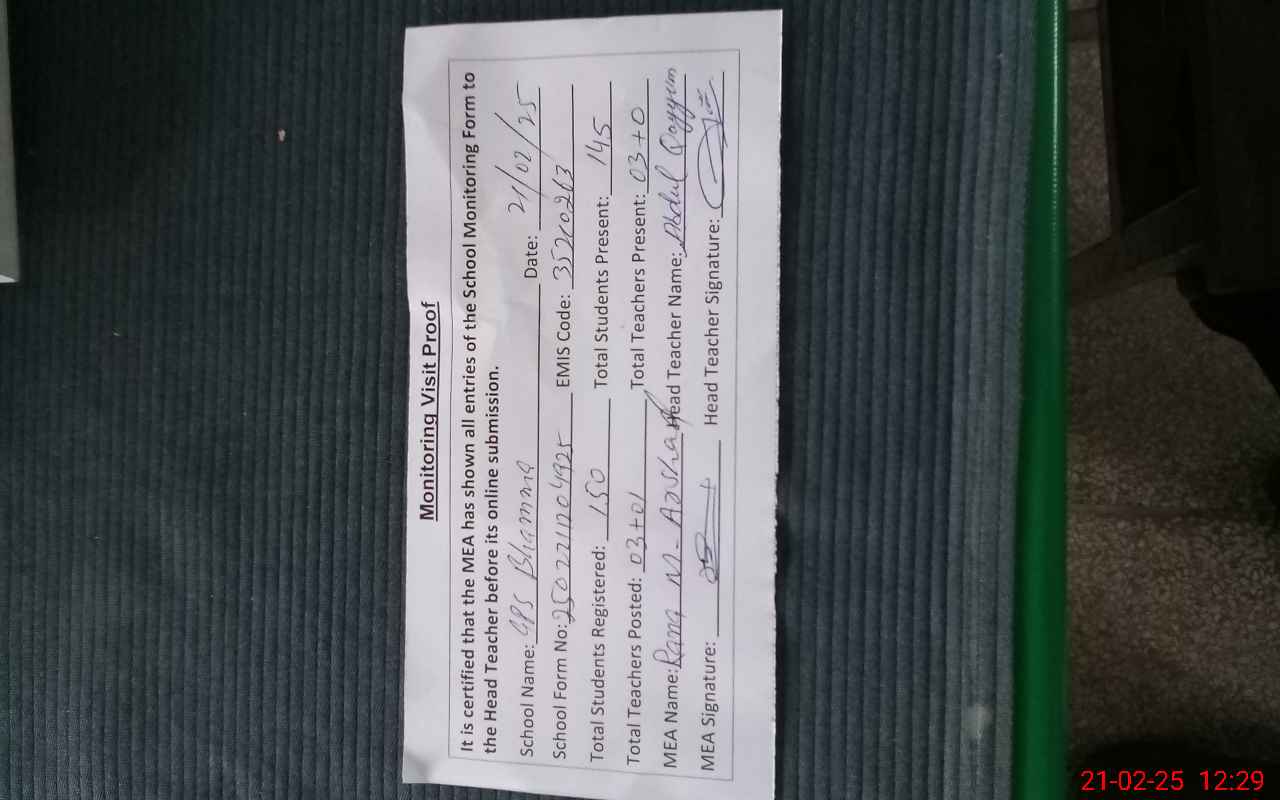 Monitoring Visit Proof
It is certified that the MEA has shown all entries of the School Monitoring Form to
the Head Teacher before its online submission.
School Name: GPS Bhamma Date: 21/02/25
School Form No: EMIS Code: 35210263
Total Students Registered: 150 Total Students Present: 145
Total Teachers Posted: 03+01 Total Teachers Present: 03+0
MEA Name: Rana M- Head Teacher Name: Abdul Qayyum
MEA Signature: Head Teacher Signature:
21-02-25 12:29